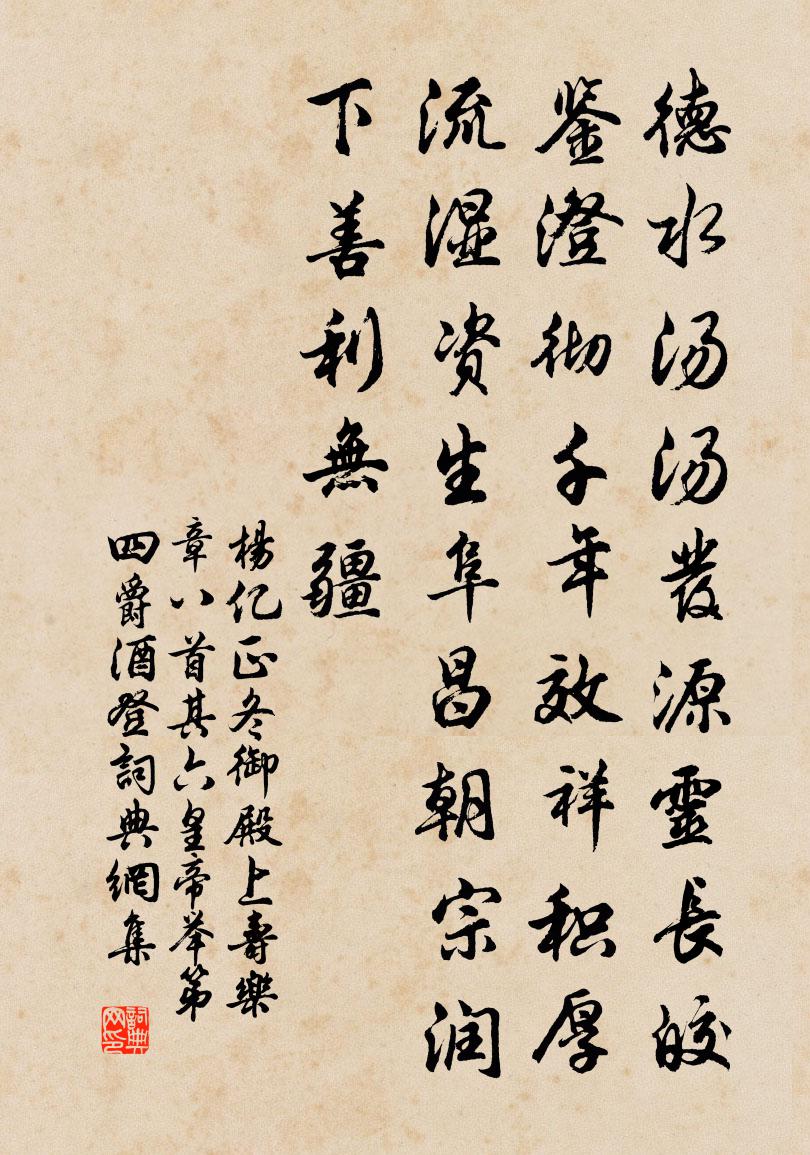 德水汤汤發源靈長皎
鉴澄彻千年效祥积厚
流湿资生阜昌朝宗润
下善利無疆
楊亿正冬御殿上壽樂
章八首其六皇帝举第
四爵酒登詞典網集
詞典网印